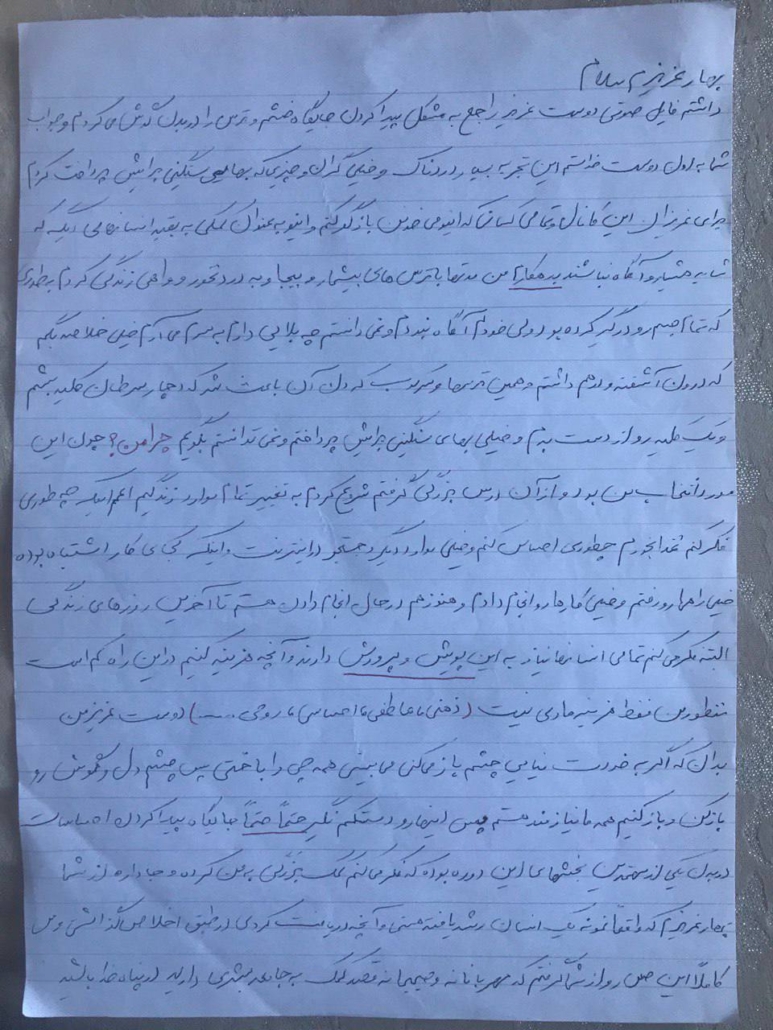 بهار عزیزم سلام
داشتم فایل صوتی دوست عزیز راجع به مشکل پیدا کردن جایگاه خشم و ترس را در بدن گوش می کردم و جواب
شما به اون دوست خواستم این تجربه بسیار دردناک و خیلی گران و چیزی که بهایی سنگینی برایش پرداخت کردم
برای عزیزان این کانال و تمامی کسانی که اینو می خونن بازگو کنم و اینو به عنوان کمکی به بقیه انسانهایی دیگه که
شاید هشیار و آگاه نباشند بدهکارم من مدتها با ترس های بیشمار و بیجا و به درد نخور و واهی زندگی کردم بطوری
که تمام جسم رو درگیر کرده بود ولی خودم آگاه نبودم و نمی دانستم چه بلایی دارم به سرم می آرم خیلی خلاصه بگم
که درون آشفته و درهم داشتم و همین ترسها و سرکوب کردن آن باعث شد که دچار سرطان کلیه بشم
و یک کلیه رو از دست بدم و خیلی بهای سنگینی برایش پرداختم و نمی توانستم بگویم چرا من؟ چون این
مورد انتخاب من بود و از آن درس بزرگی گرفتم شروع کردم به تغییر تمام موارد زندگیم اعم اینکه چه طوری
فکر کنم غذا بخورم چطوری احساس کنم و خیلی موارد دیگر و جستجو در اینترنت و اینکه کجای کار اشتباه بوده
خیلی راهها رو رفتم و خیلی کارها رو انجام دادم و هنوز هم در حال انجام دادن هستم تا آخرین روزهای زندگی
البته فکر می کنم تمامی انسانها نیاز به این پویش و پرورش دارند و آنچه هزینه کنیم در این راه کم است
منظور من فقط هزینه مادی نیست (ذهنی یا عاطفی یا احساسی یا روحی ....) دوست عزیز من
بدان که اگر به خودت نیایی چشم باز میکنی می بینی همه چی را باختی پس چشم دل و گوش رو
باز کن و باز کنیم همه ما نیازمند هستیم پس اینها رو دست کم نگیر حتماً حتماً جایگاه پیدا کردن احساسات
در بدن یکی از مهمترین بخشهای این دوره بوده که فکر می کنم کمک بزرگی به من کرده و جا داره از شما
بهار عزیزم که واقعاً نمونه یک انسان رشد یافته هستی و آنچه دریافت کردی در طبق اخلاص گذاشتی و من
کاملاً این حس رو از شما گرفتم که مهربانانه و صمیمانه قصد کمک به جامعه بشری دارید در پناه خدا باشید